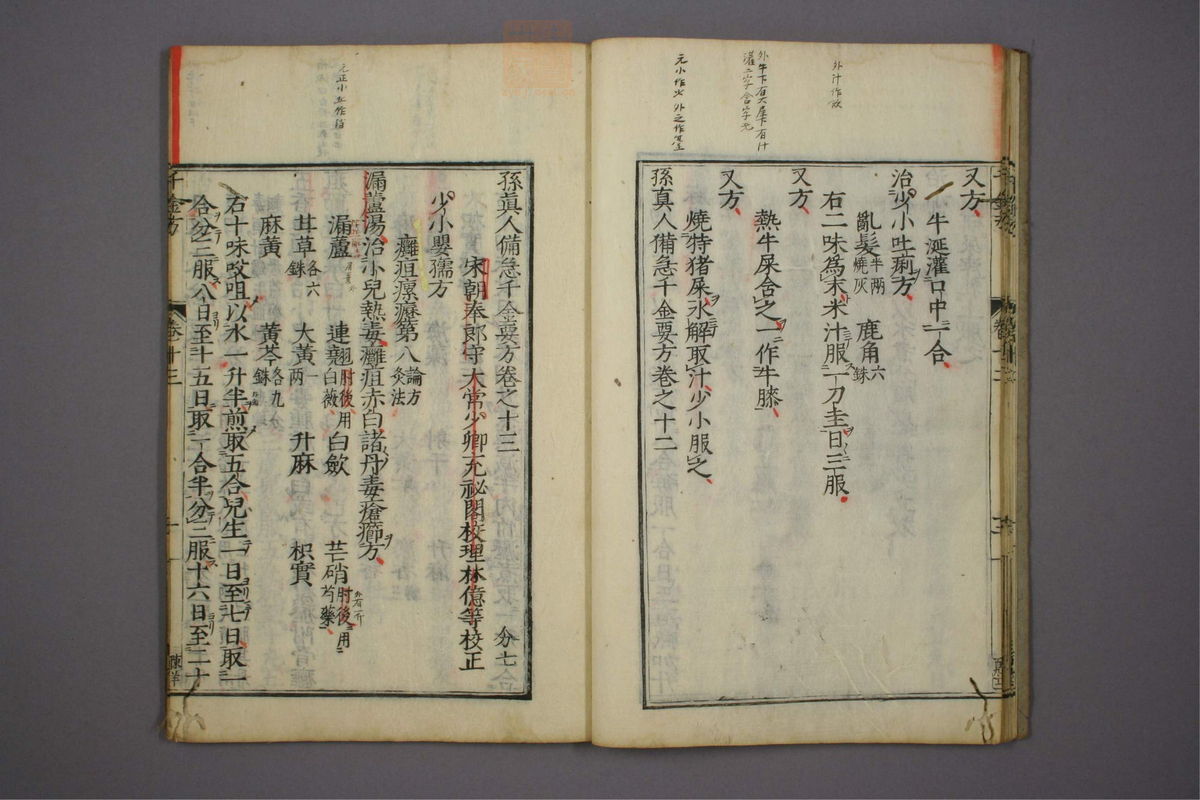 外汁作散
外牛下有大屎下有汁
灌二字含字无
元小作火 外之作立
又方
牛涎灌口中一合
治少小吐痢方
亂髮半兩燒灰 鹿角六銖
右二味為末米汁服一刀圭日三服
又方
熱牛屎含之一作牛膝
又方
燒特猪屎水解取汁少小服之
孫真人備急千金要方卷之十二
孫眞人備急千金要方卷之十三
宋朝奉郎守太常少卿充祕閣校理林億等校正
少小嬰孺方
癰疽瘰癧第八論方灸法
漏蘆湯治小兒熱毒癰疽赤白諸丹毒瘡癤方
漏蘆 連翹肘後用白薇 白歛 芒硝肘後用芍藥
甘草各六銖 大黃一兩 升麻 枳實
麻黃 黃芩各九銖
右十味㕮咀以水一升半煎取五合兒生一日至七日取一
合分三服八日至十五日取一合半分三服十六日至二十
千金方
卷十三